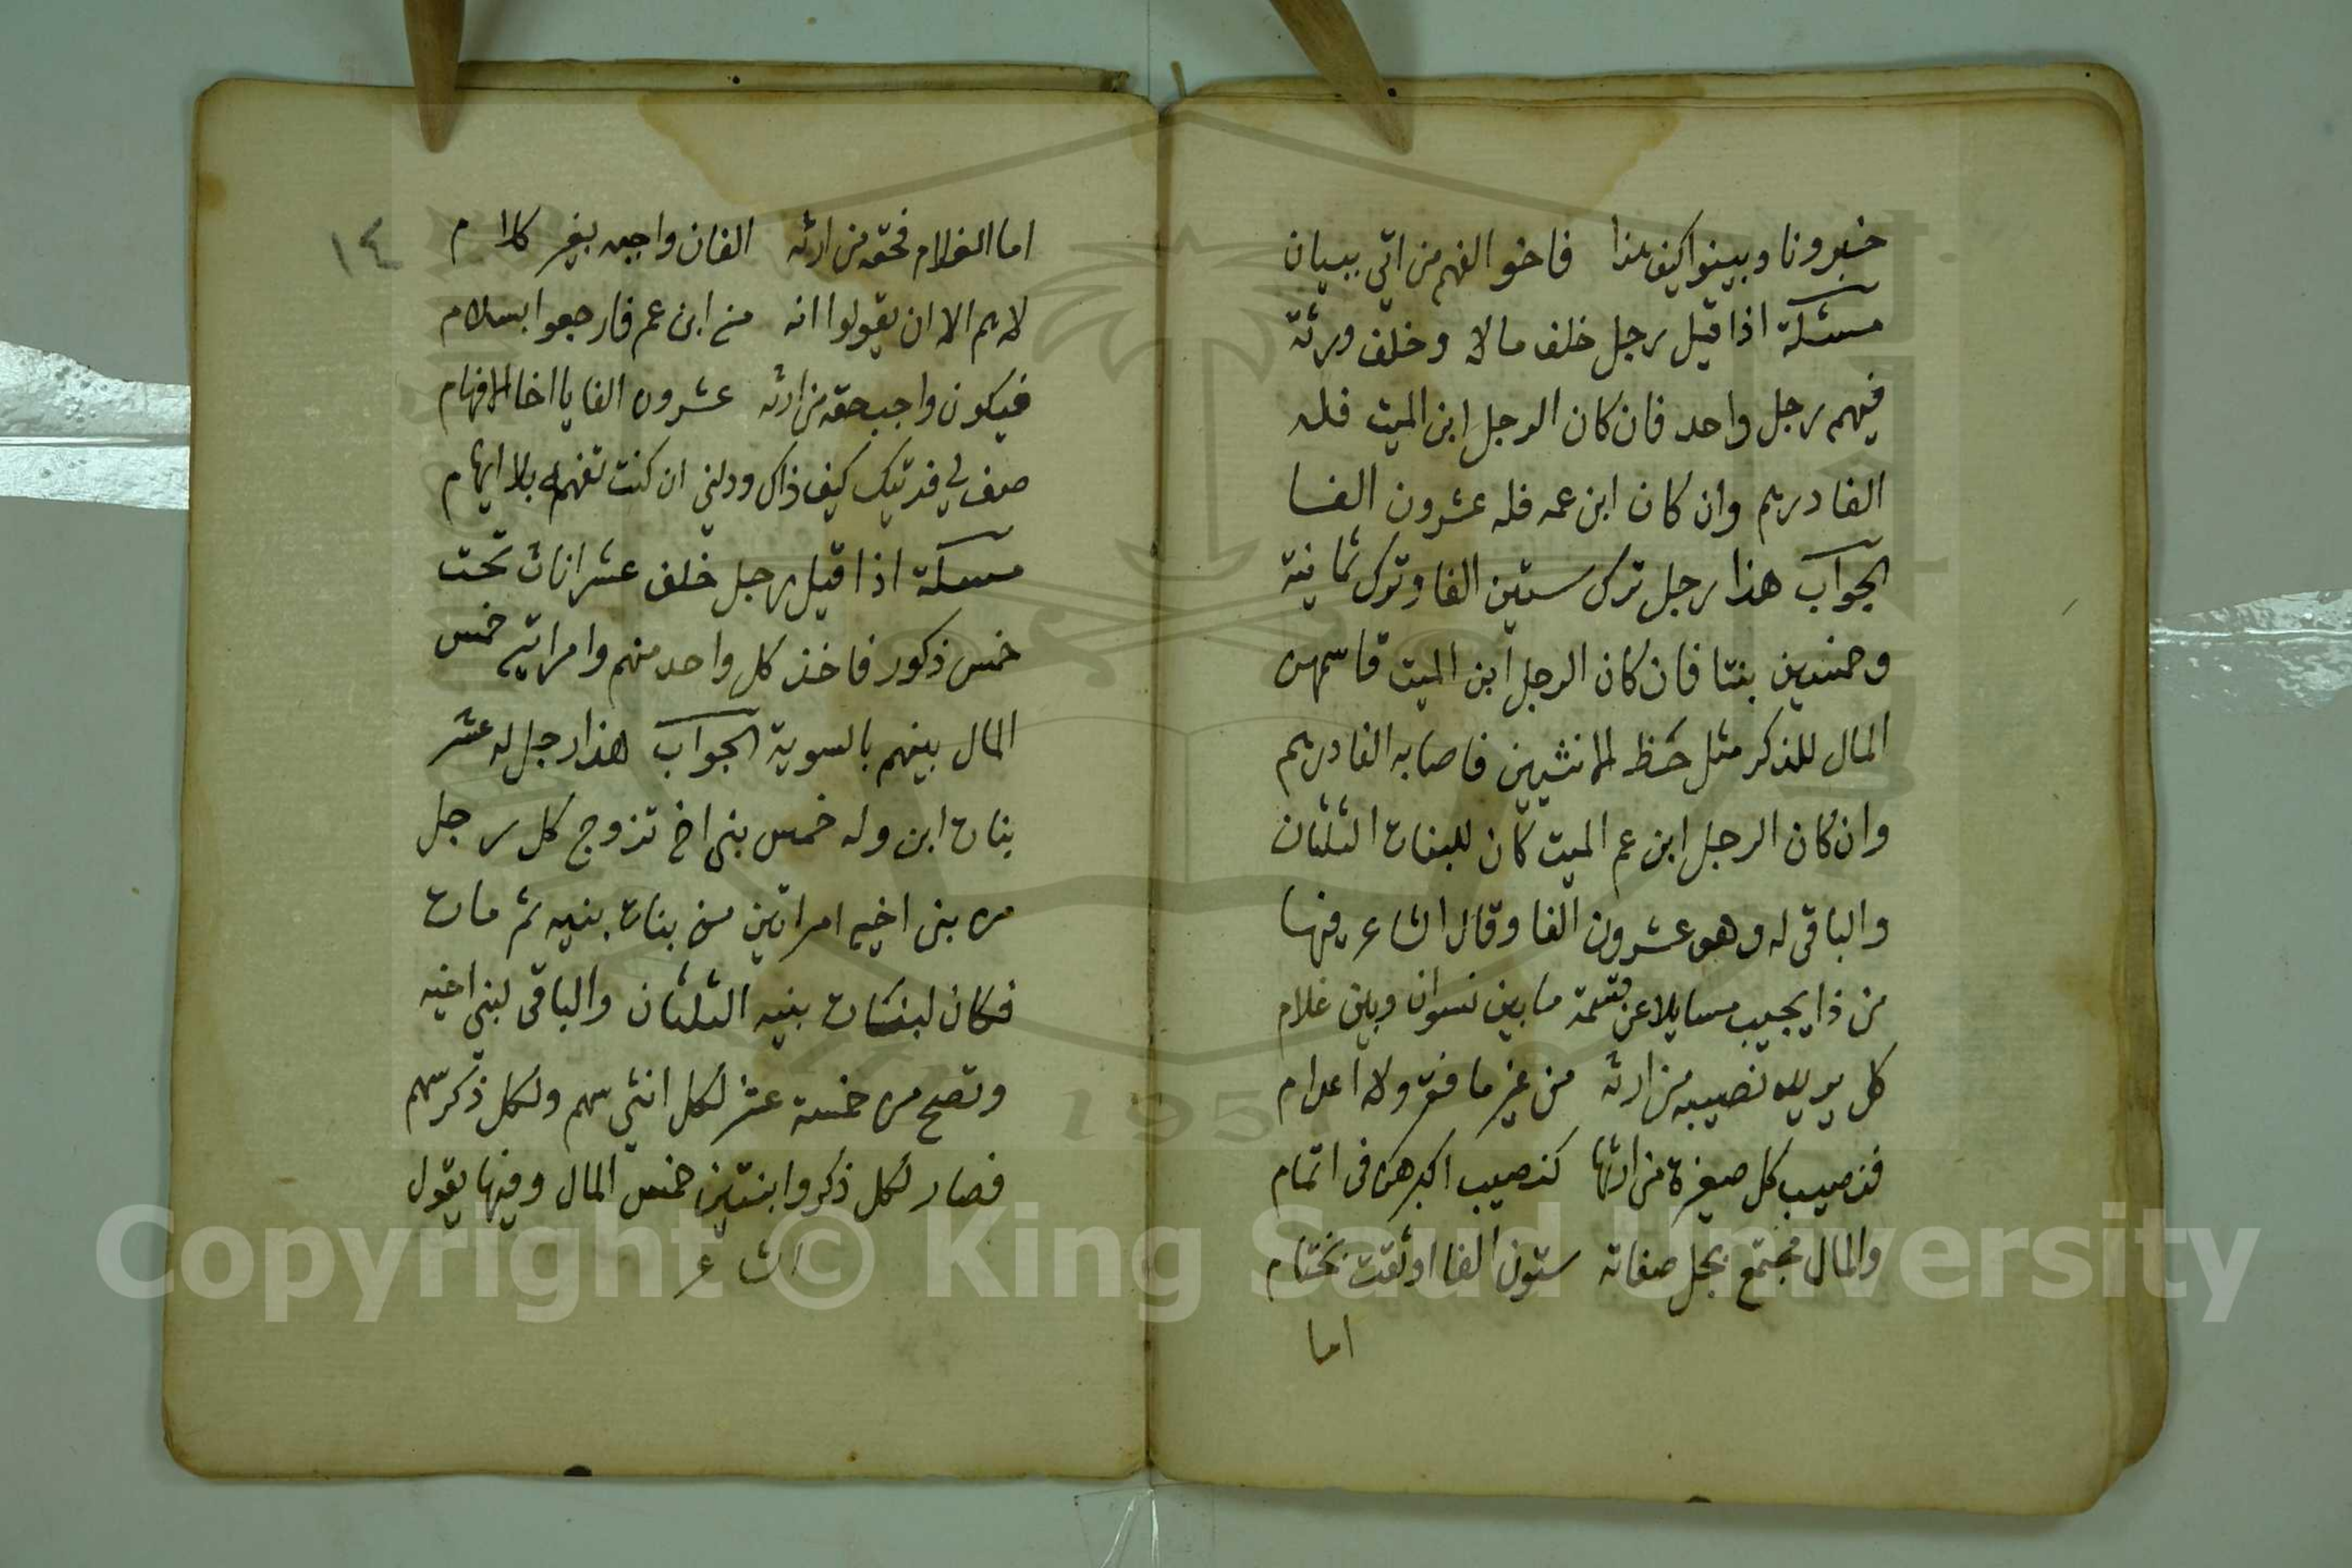 خبرونا وبينوا كيف هذا فاخو الفهم من اتى ببيان
مسئلة اذا قيل رجل خلف مالا وخلف ورثة
فيهم رجل واحد فان كان الرجل ابن الميت فله
الفا درهم وان كان ابن عمه فله عشرون الفا
الجواب هذا رجل ترك ستين الفا وترك ثمانية
وخمسين بنتا فان كان الرجل ابن الميت قاسمهن
المال للذكر مثل حظ الانثيين فاصابه الفا درهم
وان كان الرجل ابن عم الميت كان للبنات الثلثان
والباقى له وهو عشرون الفا وقال الشاعر فيها
من ذا يجيب مسايلا عن قسمة ما بين نسوان وبين غلام
كل يريد نصيبه من ارثه من غير ما فقر ولا اعدام
فنصيب كل صغيرة من ارثها كنصيب اكبرهن فى اتمام
والمال مجتمع بجل صفاته ستون الفا اوثقت بختام
اما
١٤
اما الغلام فحقه من ارثه الفان واجبه بغير كلام
لاهم الا ان يقولوا انه من ابن عم فارجعوا بسلام
فيكون واجب حقه من ارثه عشرون الفا يا اخا الافهام
صف لي فديتك كيف ذاك ودلني ان كنت تفهمه بلا ايهام
مسئلة اذا قيل رجل خلف عشر اناث تحت
خمس ذكور فاخذ كل واحد منهم وامراتيه خمس
المال بينهم بالسوية الجواب هذا رجل له عشر
بنات ابن وله خمس بنى اخ تزوج كل رجل
من بنى اخيه امراتين من بنات بنيه ثم مات
فكان لبنات بنيه الثلثان والباقى لبنى اخيه
وتصح من خمسة عشر لكل انثى سهم ولكل ذكر سهم
فصار لكل ذكر وابنتين خمس المال وفيها يقول
الشاعر
Copyright © King Saud University
1957